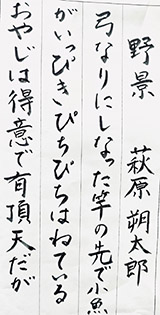 野景　萩原朔太郎
弓なりにしなった竿の先で小魚
がいっぴきぴちぴちはねている
おやじは得意で有頂天だが